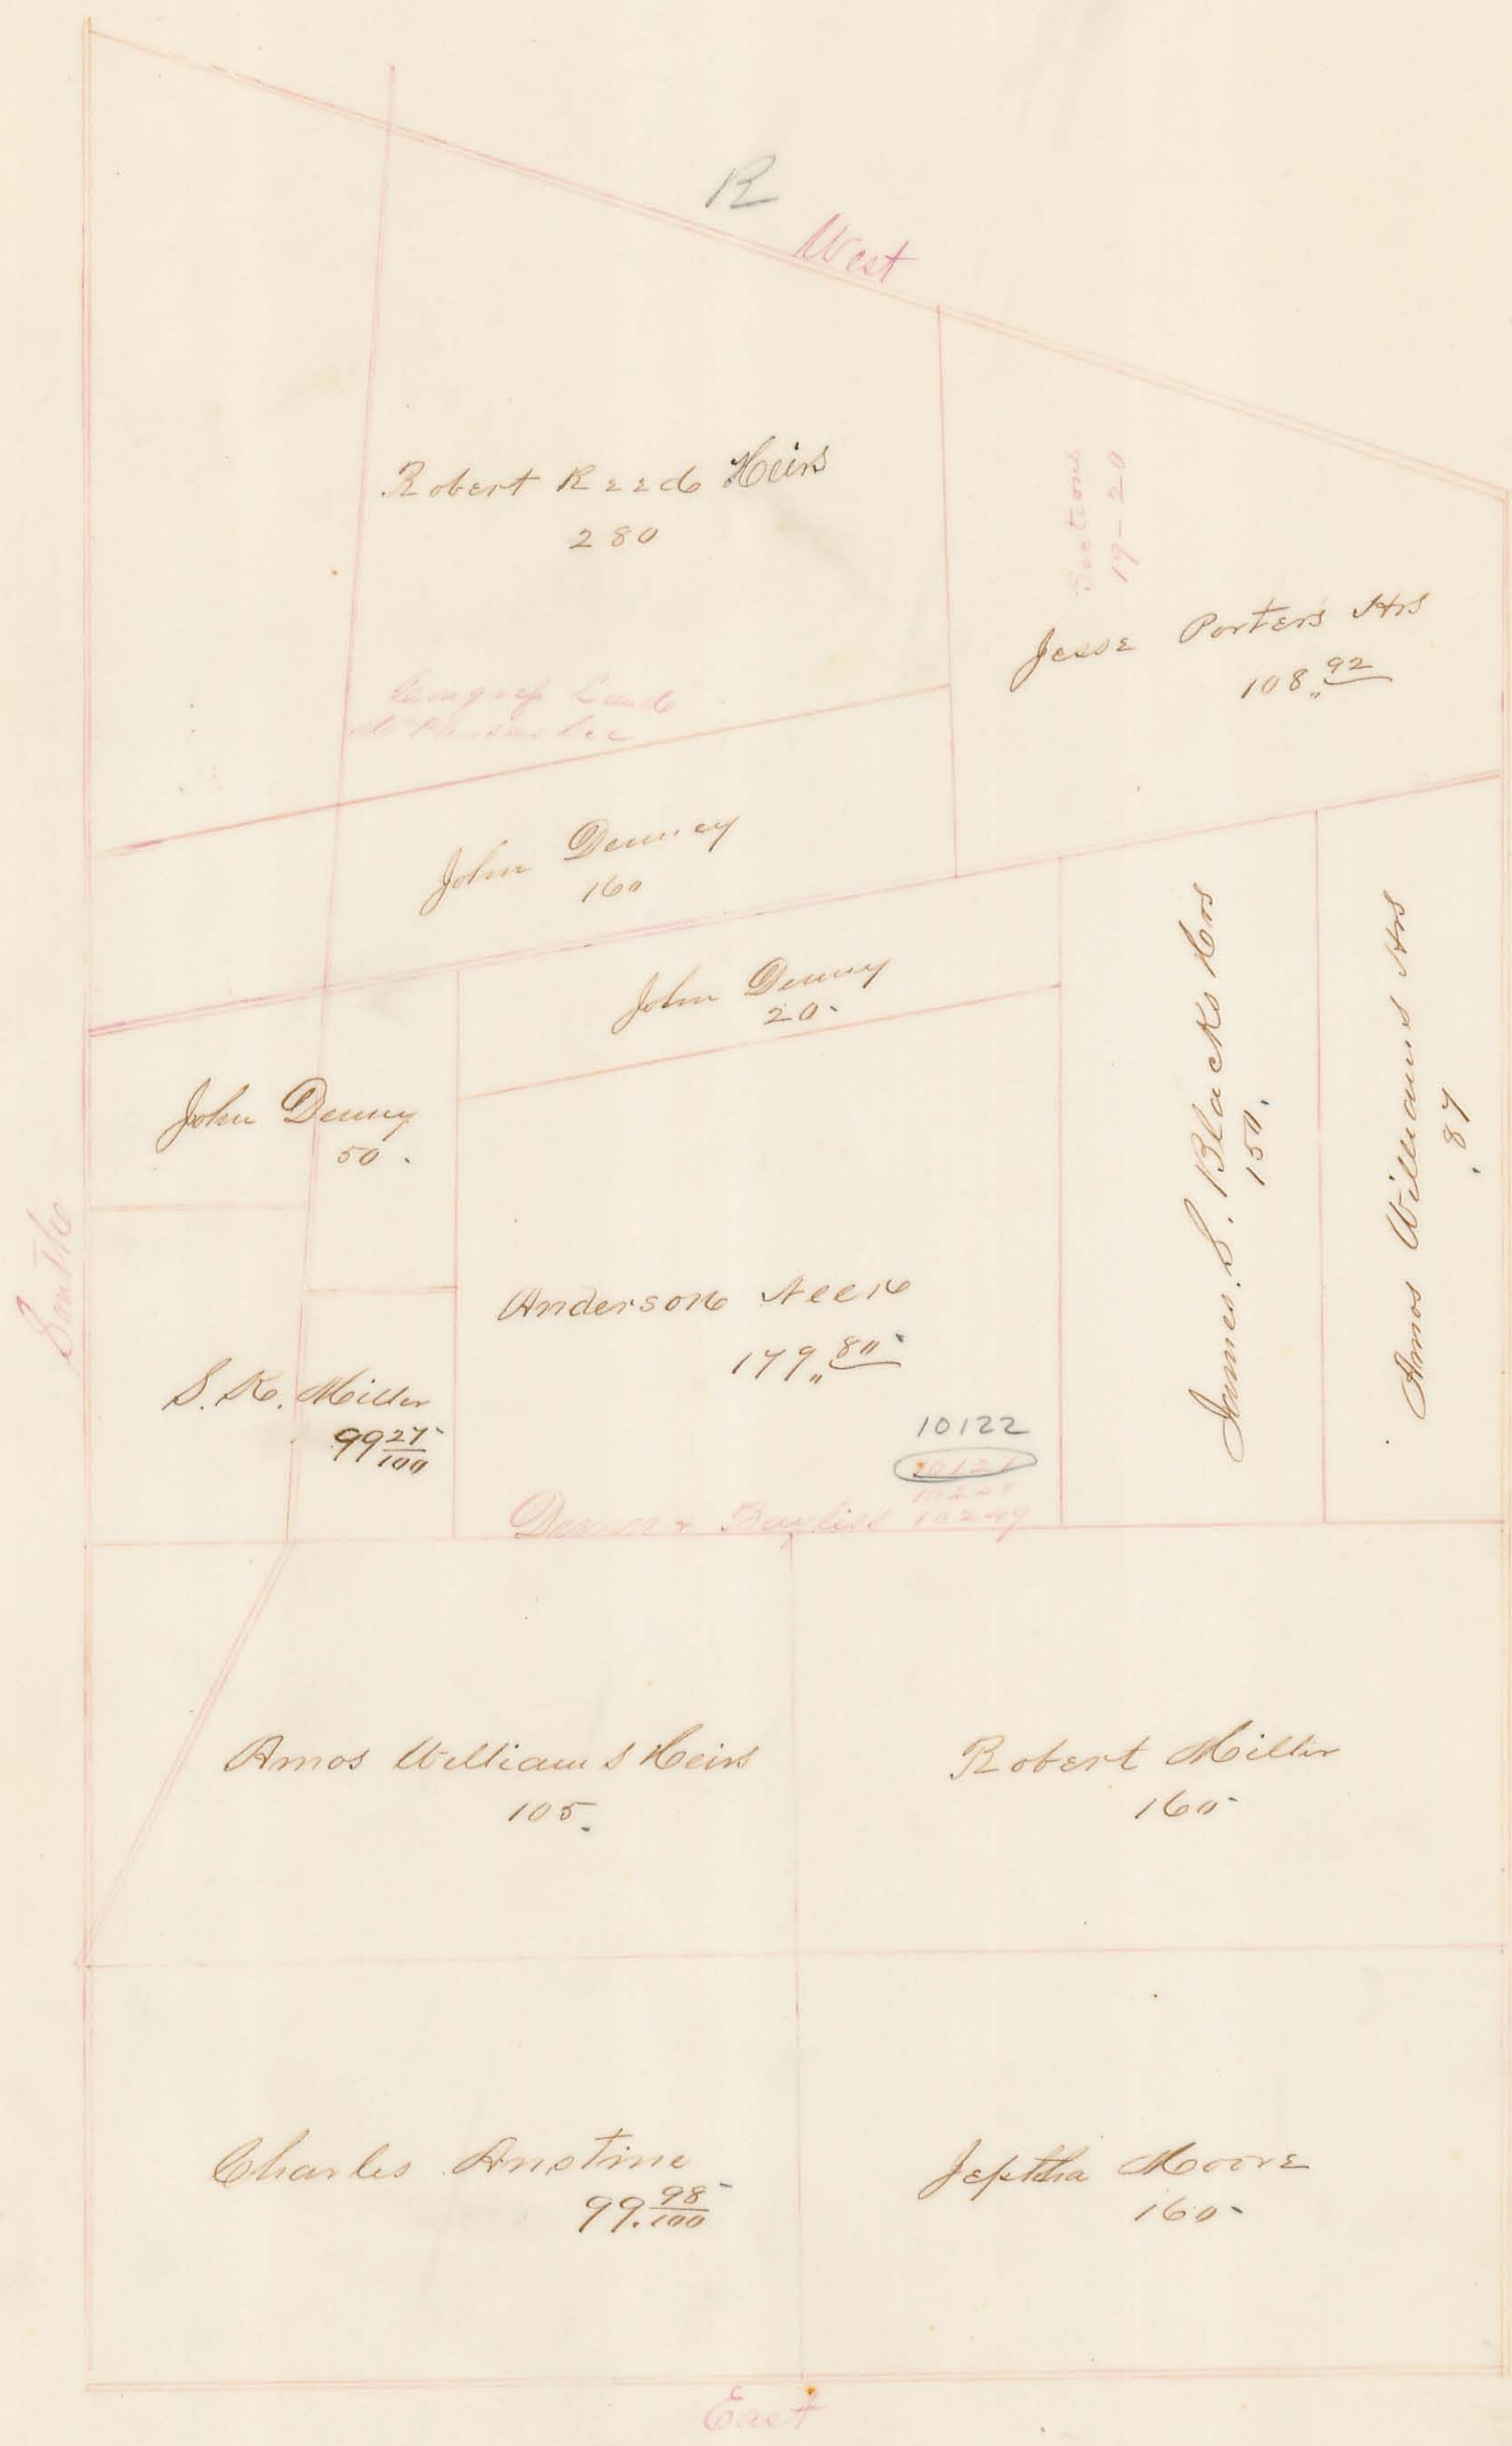 R
West
Robert Reed Heirs
280
Sections
19-20
Jesse Porters Hrs
108 " 92
Congress Lands
John Denney
160
John Denny
20.
John Denny
50.
James. S. Blacks Hrs
150.
Amos Williams Hrs
87
South
Anderson
179 " 80
S. K. Miller
99 27/100
10122
10121
10249
& Bayliss
Amos Williams Heirs
105.
Robert Miller
160
Charles Anstine
99. 98/100
Jeptha Moore
160
East